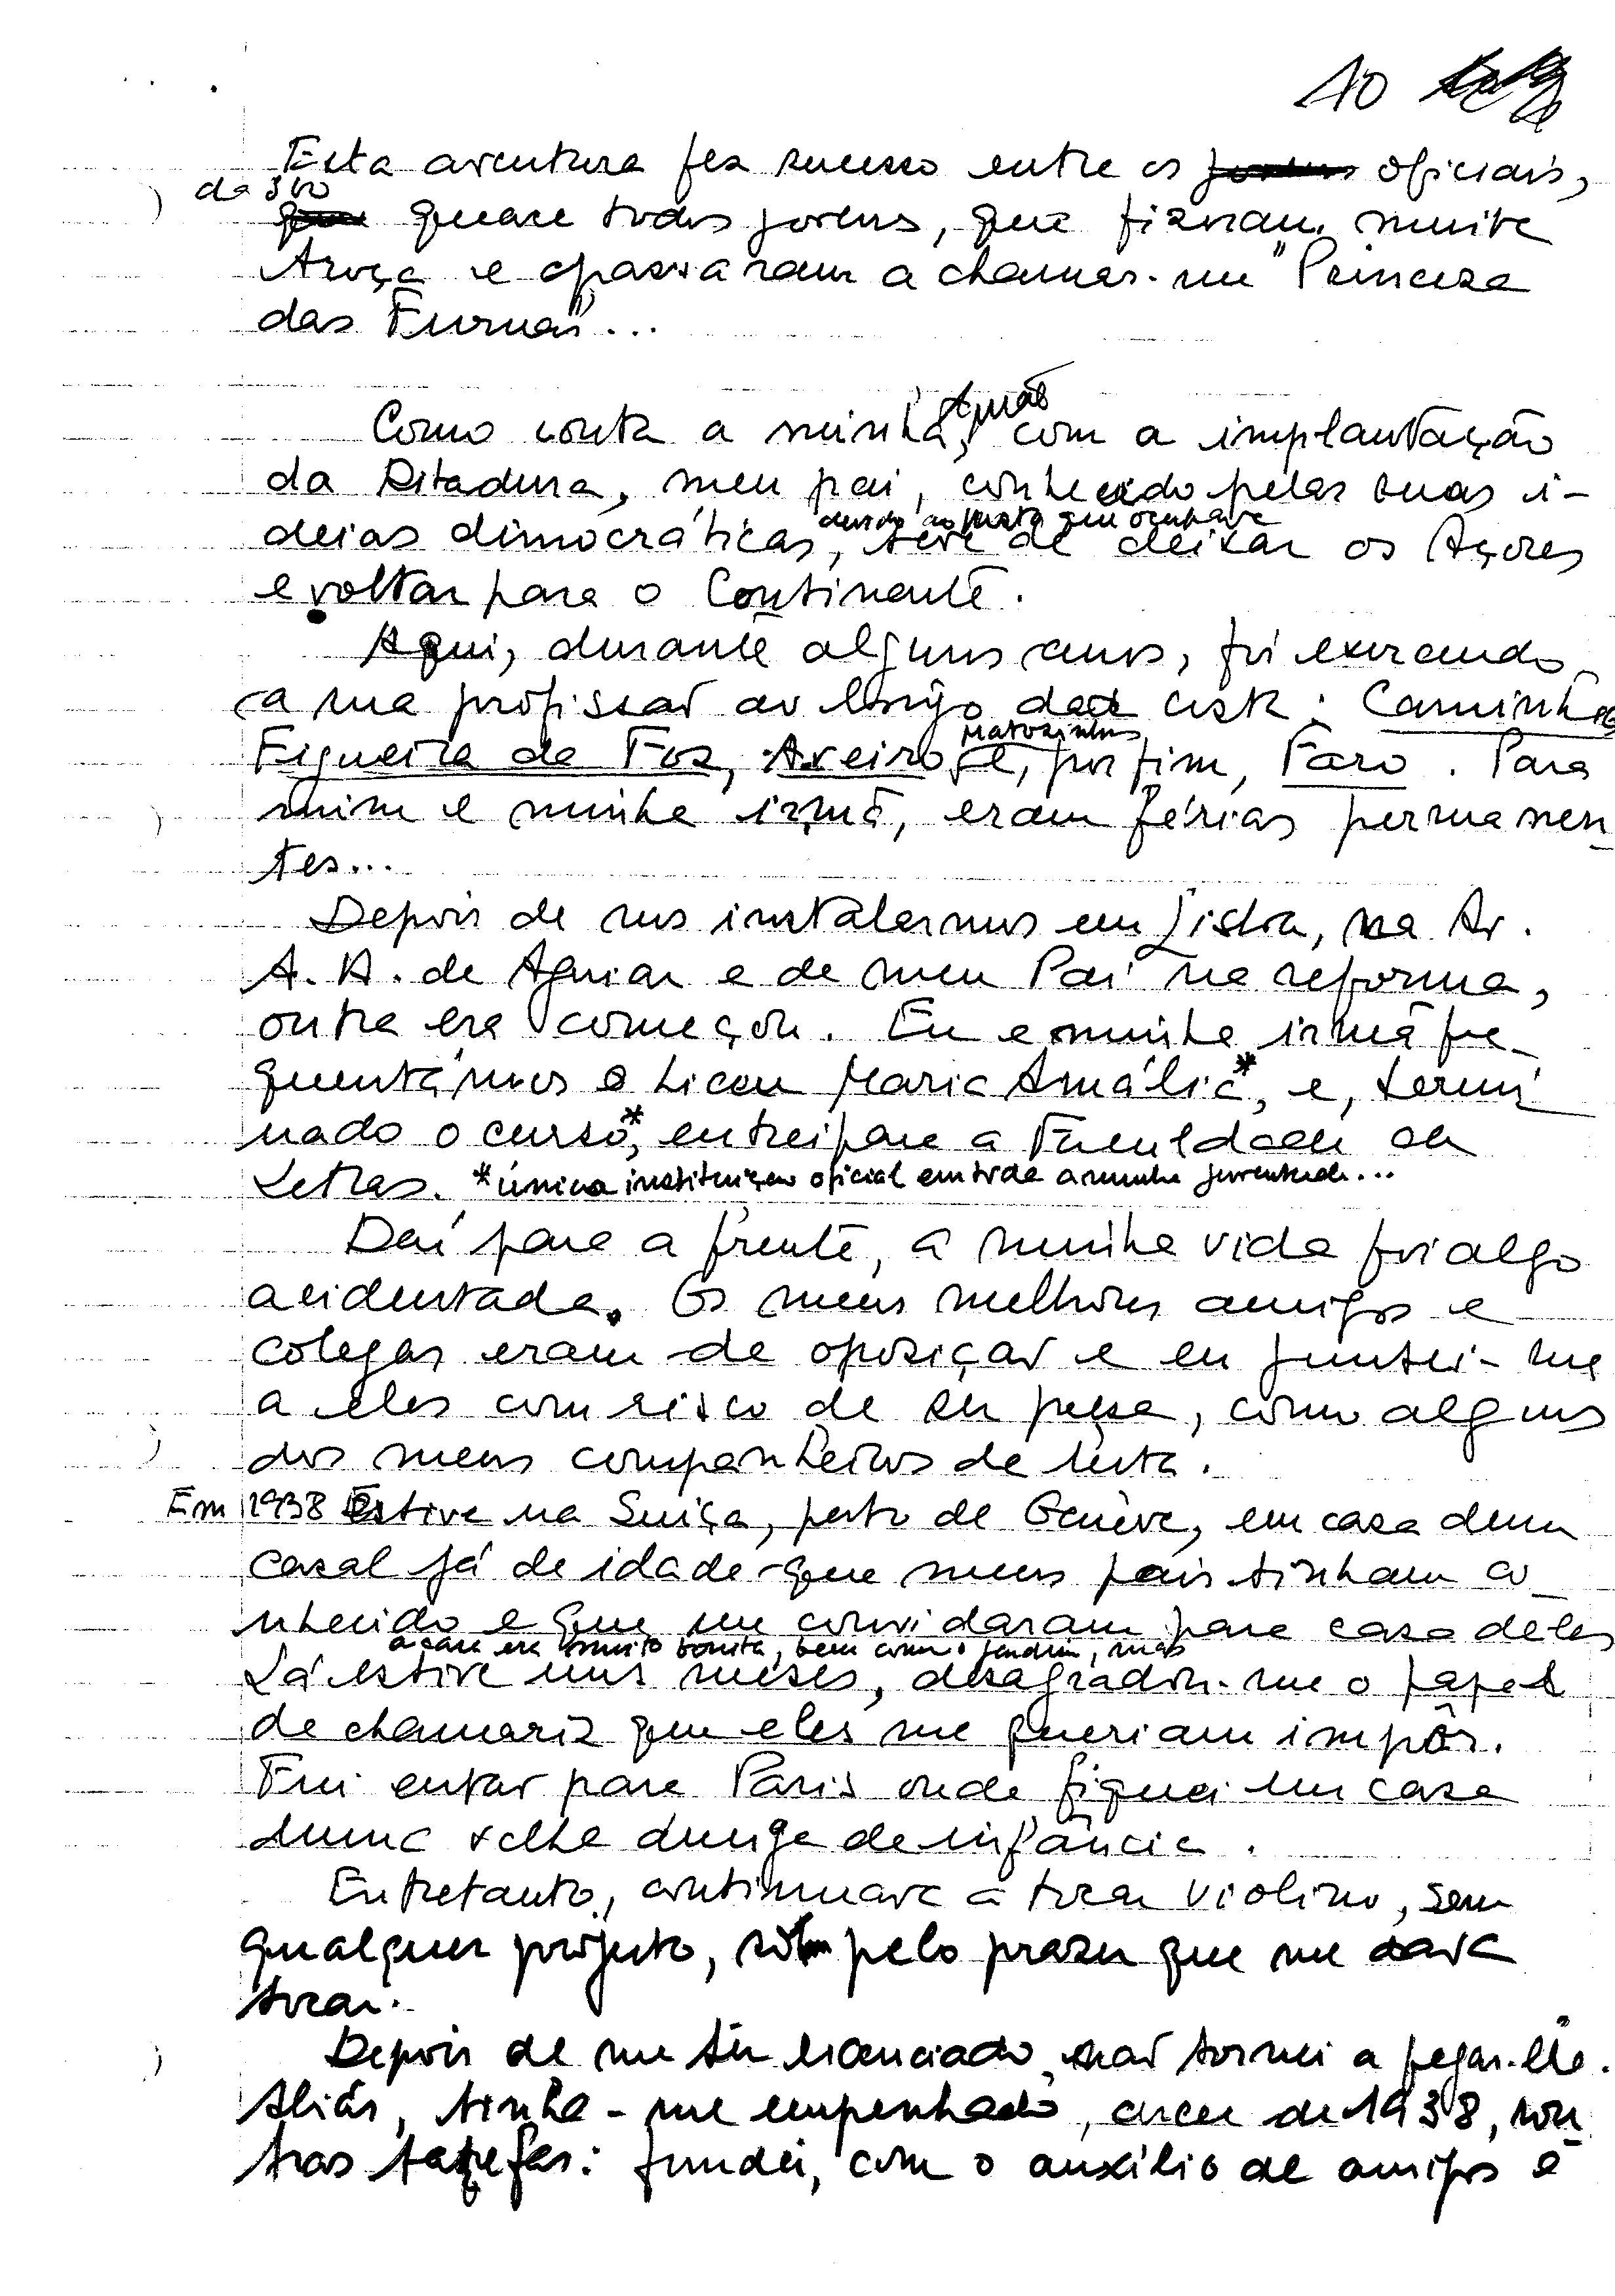 10
Esta aventura fez sucesso entre os jovens oficiais,
quase todos jovens, que fizeram muita
troça e passaram a chamar-me "Princesa
das Furnas"...
Como conta a minha irmã, com a implantação
da Ditadura, meu pai, conhecido pelas suas i-
deias dimocráticas, teve de deixar os Açores
devido ao posto que ocupava
e voltar para o Continente.
Aqui, durante alguns anos, foi exercendo
a sua profissão ao longo da costa: Caminha
Figueira da Foz, Aveiro, Matozinhos e, por fim, Faro. Para
mim e minha irmã, eram férias permanen
tes...
Depois de nos instalarmos em Lisboa, na Av.
A. A. de Aguiar e de meu Pai na reforma,
outra era começou. Eu e minha irmã fre-
quentámos o Liceu Maria Amália*, e, termi
nado o curso*, entrei para a Faculdade de
Letras. *única instituição oficial em toda a minha juventude...
Daí para a frente, a minha vida foi algo
acidentada. Os meus melhores amigos e
colegas eram de oposição e eu juntei-me
a eles com risco de ser presa, como alguns
dos meus companheiros de luta.
Em 1938 Estive na Suiça, perto de Genève, em casa dum
casal já de idade que meus pais tinham co_
nhecido e que me convidaram para casa deles
a casa era muito bonita, bem como o jardim, mas
Lá estive uns meses, desagradou-me o papel
de chamariz que eles me queriam impôr.
Fui então para Paris onde fiquei em casa
duma velha amiga de infância.
Entretanto, continuava a tocar violino, sem
qualquer projecto, só pelo prazer que me dava
tocar.
Depois de me ter licenciado, não tornei a pegar-lhe.
Aliás, tinha-me empenhado, cerca de 1938, nou
tras tarefas: fundei, com o auxílio de amigos e